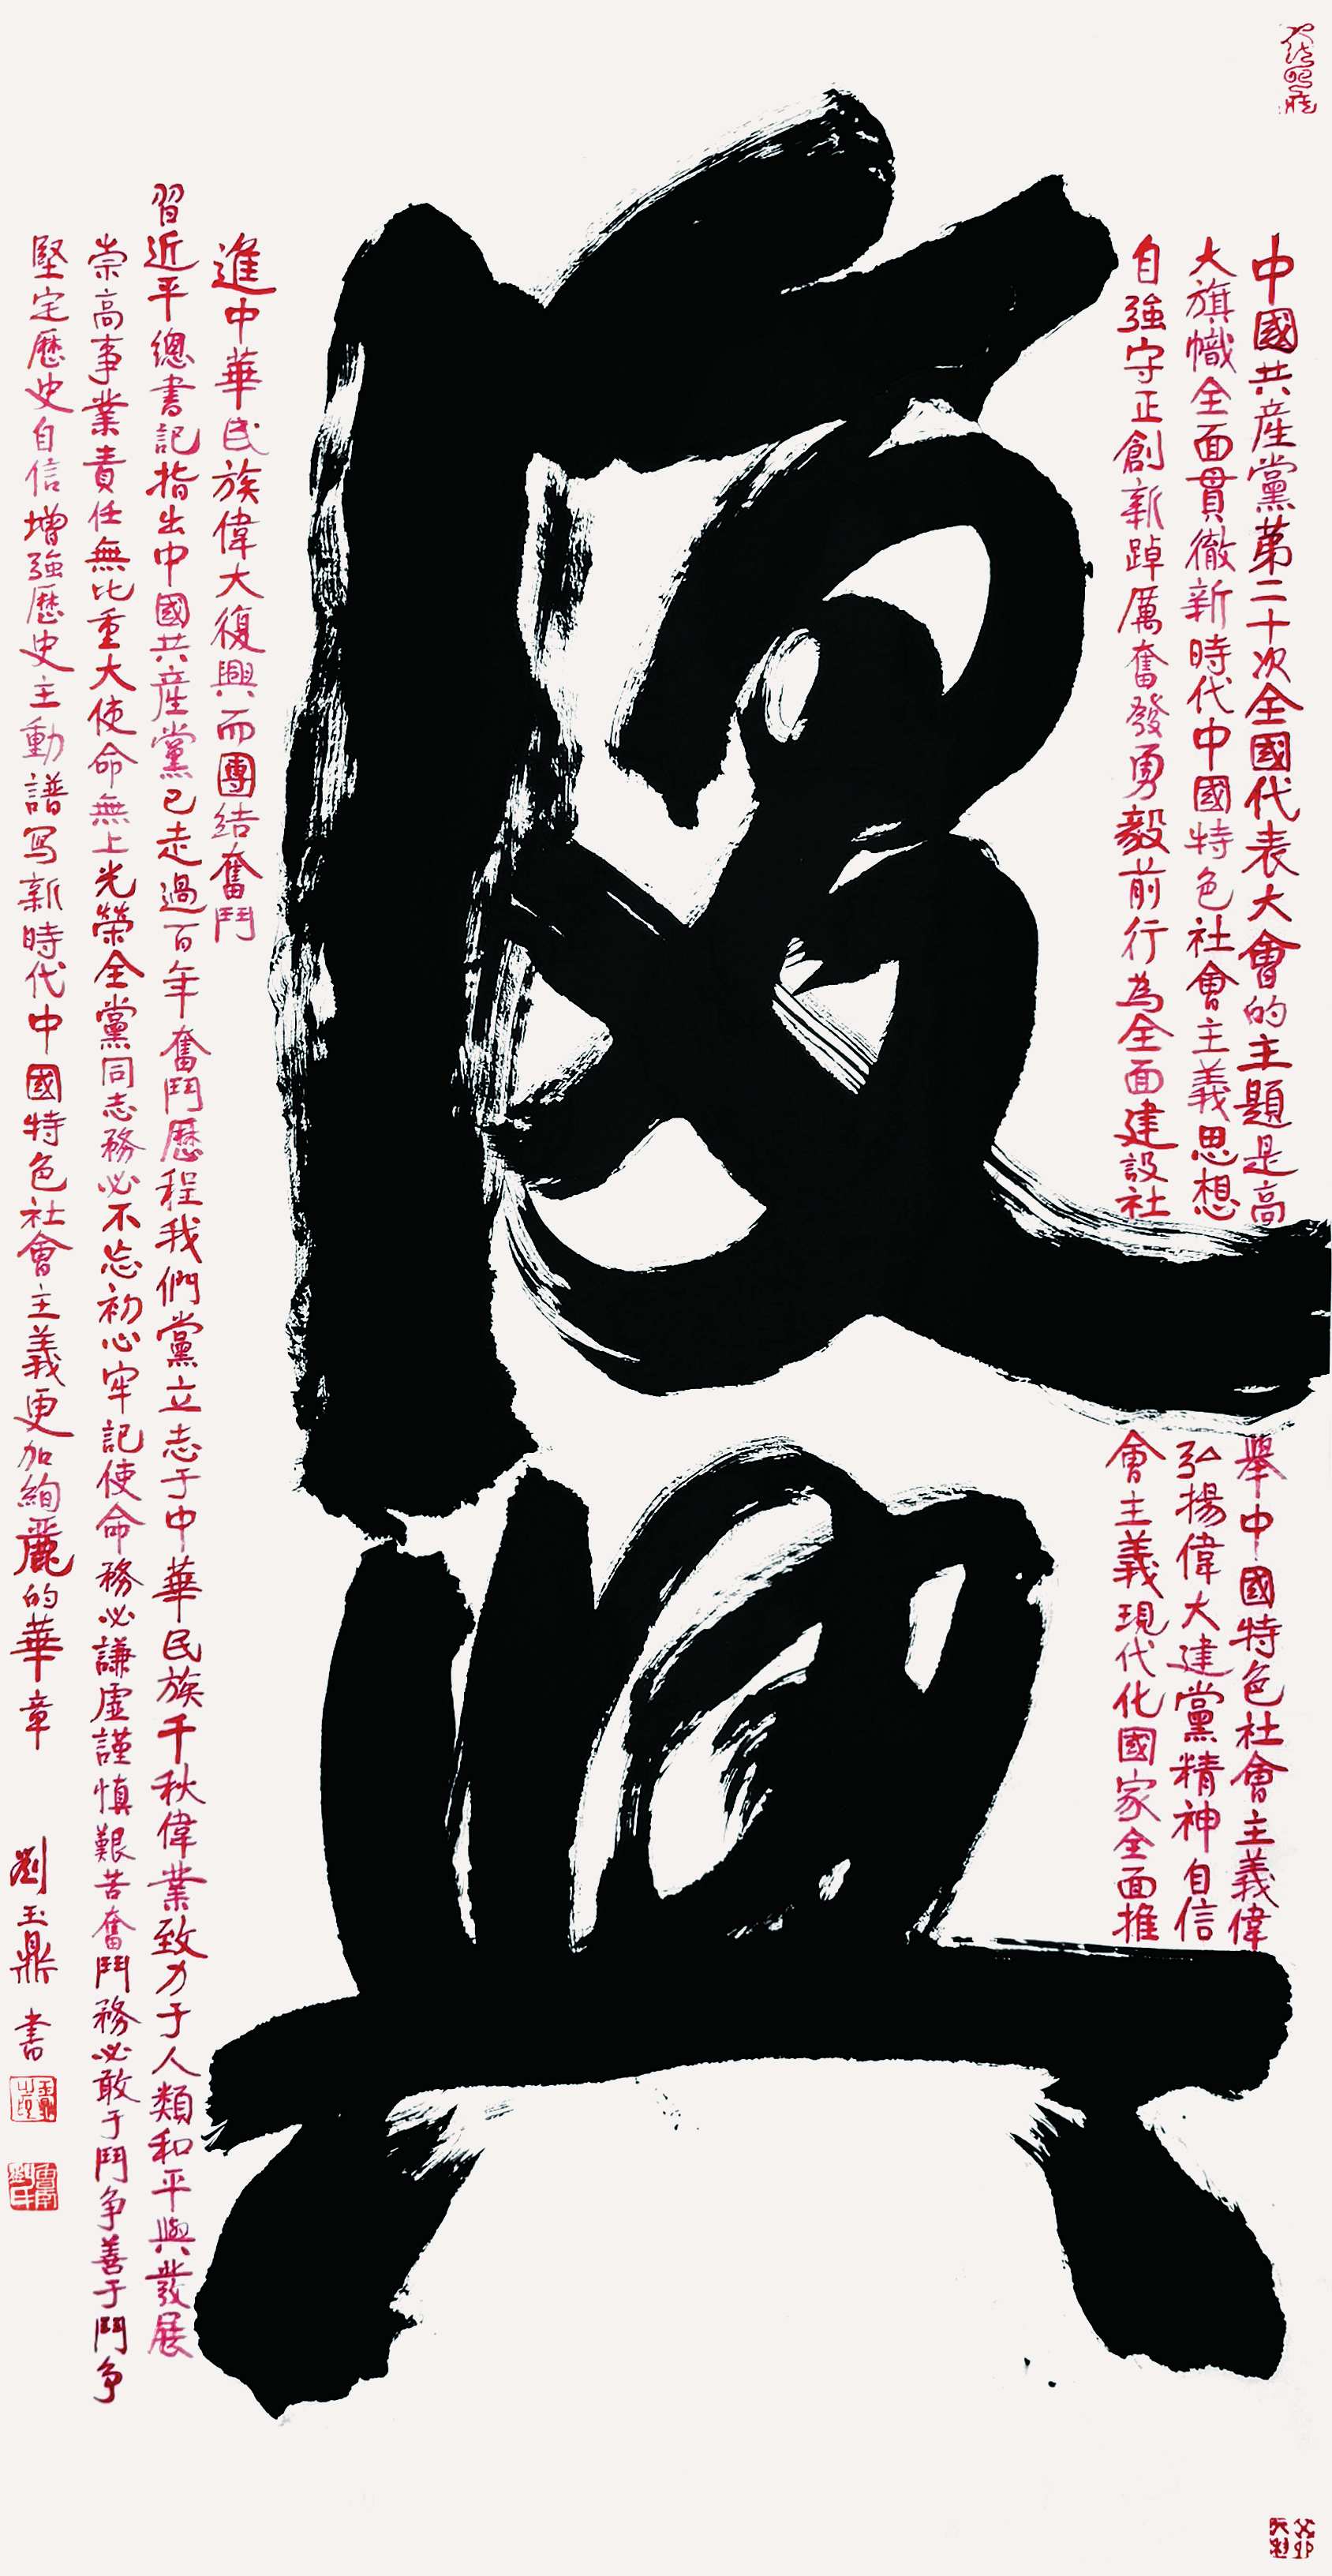 復興
中國共產黨第二十次全國代表大會的主題是高舉中國特色社會主義偉
大旗幟全面貫徹新時代中國特色社會主義思想弘揚偉大建黨精神自信
自強守正創新踔厲奮發勇毅前行為全面建設社會主義現代化國家全面推
進中華民族偉大復興而團结奮鬥
習近平總書記指出中國共產黨已走過百年奮鬥歷程我們黨立志于中華民族千秋偉業致力于人類和平與發展
崇高事業責任無比重大使命無上光榮全黨同志務必不忘初心牢記使命務必謙虛謹慎艱苦奮鬥務必敢于鬥爭善于鬥爭
堅定歷史自信增強歷史主動譜写新時代中國特色社會主義更加絢麗的華章
劉玉鼎書